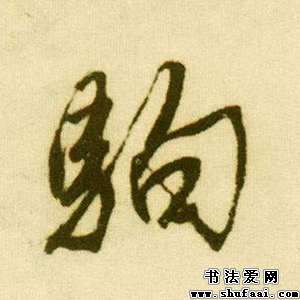 駒
书法爱网
www.shufaai.com